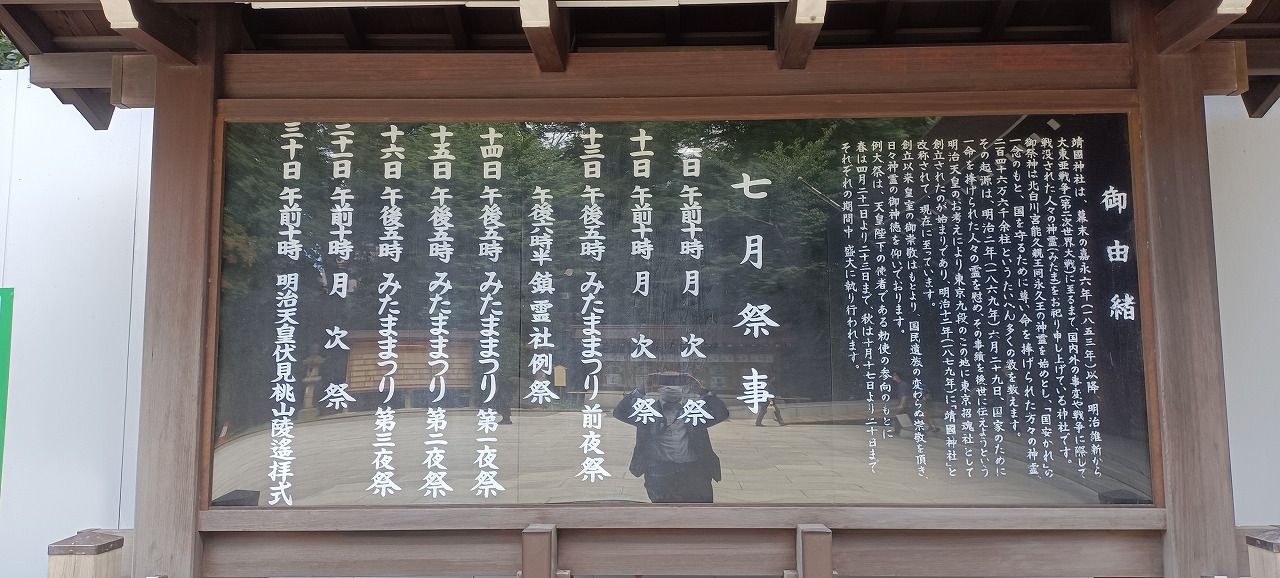 御由緒
靖國神社は、幕末の嘉永六年(一八五三年)以降、明治維新から
大東亜戦争(第二次世界大戦)に至るまで、国内外の事変や戦争に際して
戦没された人々の神霊(みたま)をお祀り申し上げている神社です。
御祭神は北白川宮能久親王同永久王の神霊を始めとし、「国安かれ」の
一念のもと、国を守るために尊い命を捧げられた方々の神霊、
二百四十六万六千余柱というたいへん多くの数を数えます。
その起源は、明治二年(一八六九年)六月二十九日、国家のために
一命を捧げられた人々の霊を慰め、その事績を後世に伝えようという
明治天皇のお考えにより東京九段のこの地に東京招魂社として
創立されたのが始まりであり、明治十二年(一八七九年)に「靖國神社」と
改称されて、現在に至っています。
創立以来、皇室の御崇敬はもとより、国民遺族の変わらぬ崇敬を頂き、
日々神霊の御神徳を仰いでおります。
例大祭は、天皇陛下の使者である勅使の参向のもとに
春は四月二十一日より二十三日まで、秋は十月十七日より二十日まで、
それぞれの期間中、盛大に執り行われます。
七月祭事
一日 午前十時 月次祭
十一日 午前十時 月次祭
十三日 午後五時 みたままつり 前夜祭
午後六時半 鎮霊社例祭
十四日 午後五時 みたままつり 第一夜祭
十五日 午後五時 みたままつり 第二夜祭
十六日 午後五時 みたままつり 第三夜祭
二十一日 午前十時 月次祭
三十日 午前十時 明治天皇伏見桃山陵遙拝式